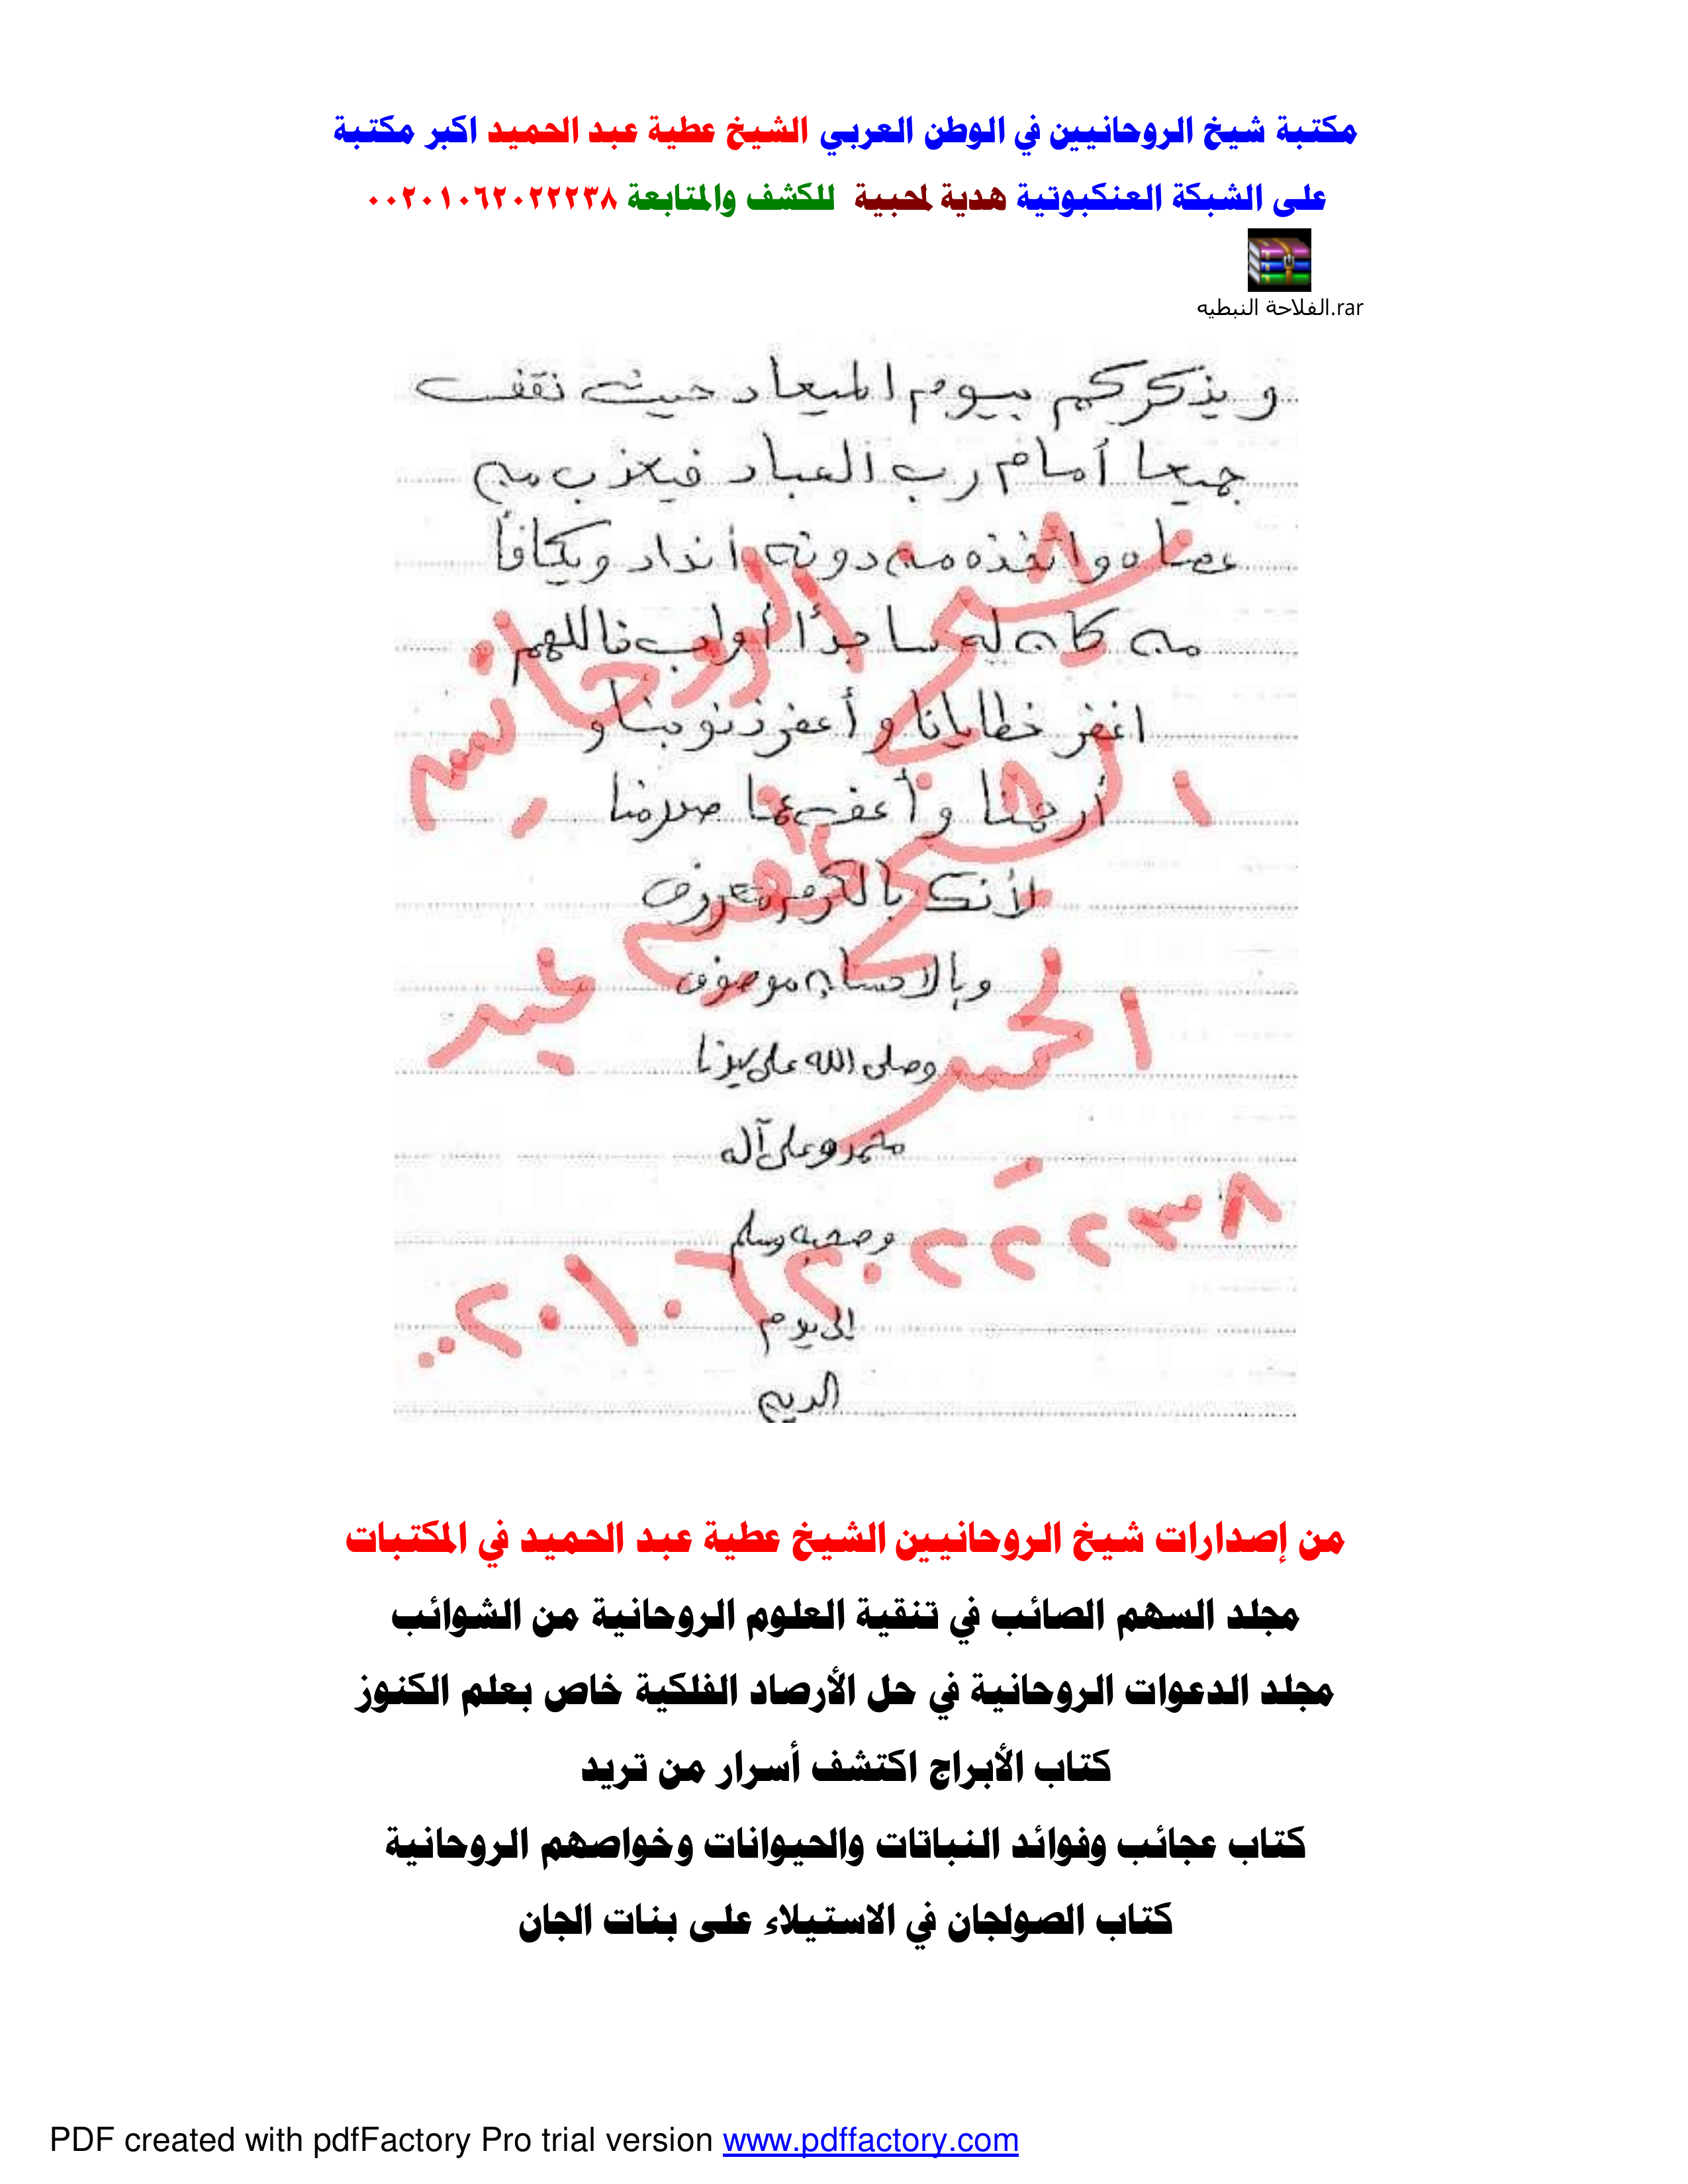 مكتبة شيخ الروحانيين في الوطن العربي الشيخ عطية عبد الحميد اكبر مكتبة
على الشبكة العنكبوتية هدية لمحبية للكشف والمتابعة ٠٠٢٠١٠٦٢٠٢٢٢٣٨
الفلاحة النبطيه.rar
و يذكركم بيوم الميعاد حيث نقف
جميعا أمام رب العباد فيعذب من
عصاه واتخذه من دونه أنداد ويكافأ
من كان له ساجدأ أواب فاللهم
اغفر خطايانا و أعفر ذنوبنا و
أرحمنا و أعف عما صدر منا
لأنك بالكرم معروف
وبالاحسان موصوف
وصلى الله على سيدنا
محمد وعلى آله
وصحبه وسلم
إلى يوم
الدين
شيخ الروحانيين
الشيخ عطية عبد
الحميد
٠٠٢٠١٠٦٢٠٢٢٢٣٨
من إصدارات شيخ الروحانيين الشيخ عطية عبد الحميد في المكتبات
مجلد السهم الصائب في تنقية العلوم الروحانية من الشوائب
مجلد الدعوات الروحانية في حل الأرصاد الفلكية خاص بعلم الكنوز
كتاب الأبراج اكتشف أسرار من تريد
كتاب عجائب وفوائد النباتات والحيوانات وخواصهم الروحانية
كتاب الصولجان في الاستيلاء على بنات الجان
PDF created with pdfFactory Pro trial version www.pdffactory.com